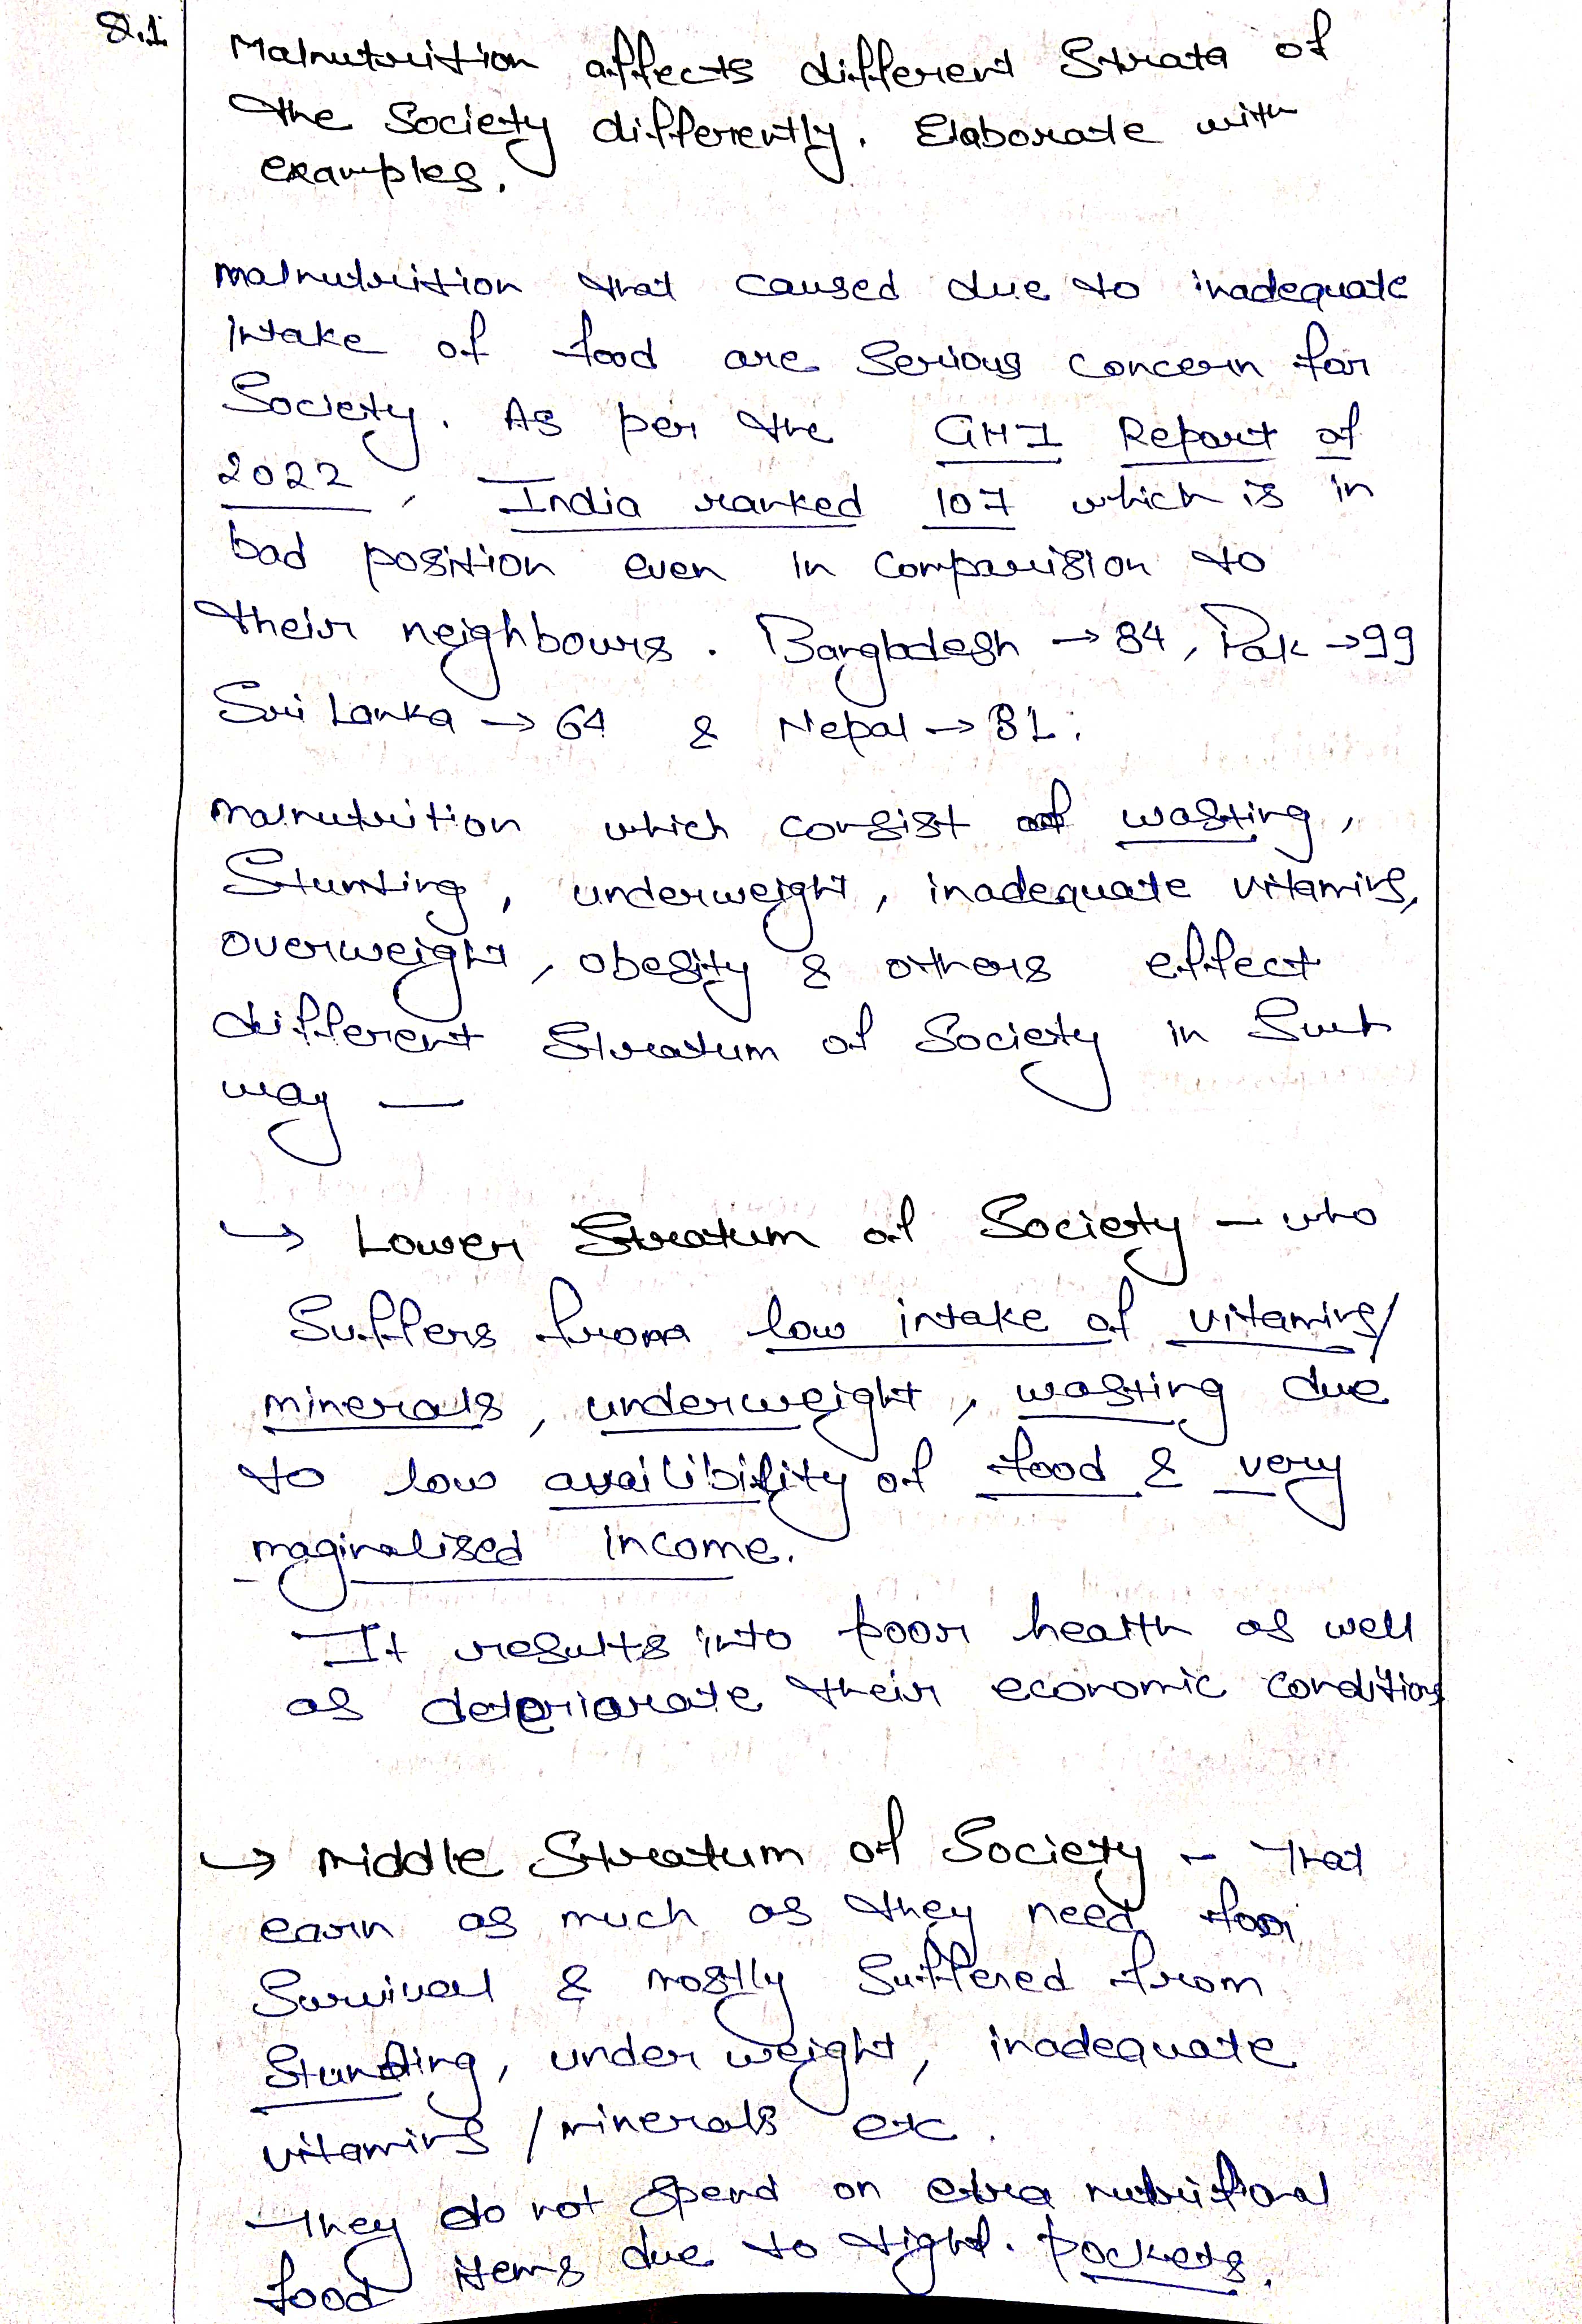 Q.1.
Malnutrition affects different Strata of
the Society differently. Elaborate with
examples.
malnutrition that caused due to inadequate
intake of food are Serious concern for
Society. As per the GHI Report of
2022, India ranked 107 which is in
bad position even in comparision to
their neighbours. Bangladesh → 84, Pak → 99
Sri Lanka → 64 & Nepal → 81.
malnutrition which consist of wasting,
Stunting, underweight, inadequate vitamins,
overweight, obesity & others effect
different Stratum of Society in Such
way —
→ Lower Stratum of Society – who
Suffers from low intake of vitamins/
minerals, underweight, wasting due
to low availibility of food & very
maginalised income.
It results into poor health as well
as deteriorate their economic conditions
→ Middle Stratum of Society – that
earn as much as they need for
Survival & mostly Suffered from
Stunting, under weight, inadequate
vitamins / minerals etc.
They do not Spend on extra nutritional
food items due to tight. pockets.